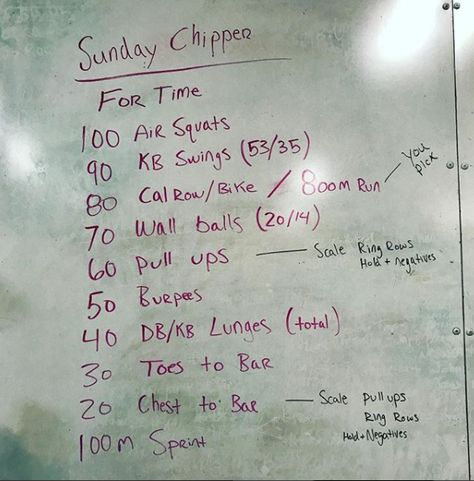 Sunday Chipper
For Time
100 Air Squats
90 KB Swings (53/35)
80 Cal Row/Bike / 800m Run — You pick
70 Wall balls (20/14)
60 Pull ups — Scale Ring Rows
Hold + negatives
50 Burpees
40 DB/KB Lunges (total)
30 Toes to Bar
20 Chest to Bar — Scale Pull ups
Ring Rows
Hold + Negatives
100m Sprint